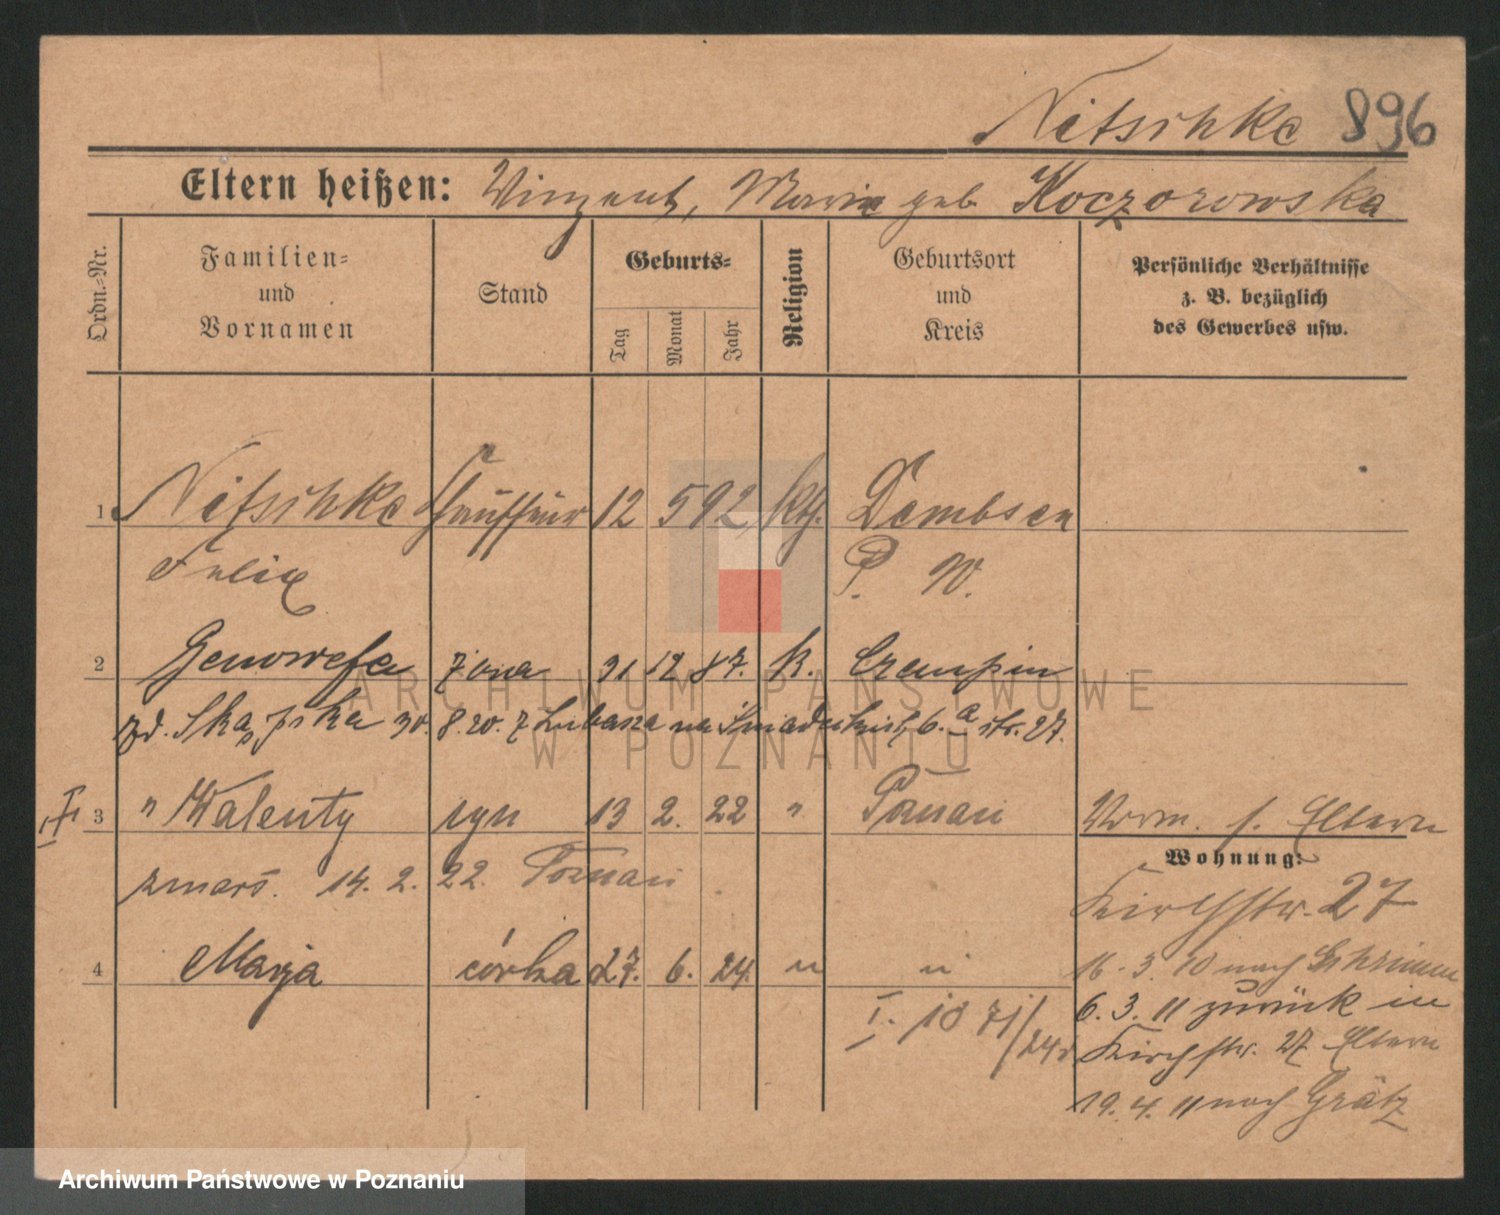 Nitschke 896
Eltern heißen: Vinzent, Maria geb. Koczorowska
Ordn.-Nr.
Familien- und Vornamen
Stand
Geburts-
Tag
Monat
Jahr
Religion
Geburtsort und Kreis
Persönliche Verhältnisse z. B. bezüglich des Gewerbes usw.
1 Nitschke Chauffeur 12 5 92 kth. Dembsen
Felix P. W.
2 Genowefa żona 31 12 87. K. Czempin
zd. Skapska 30. 8. 20. z Lubasza na Śniadeckich 6. a str. 27.
3 " Walenty syn 13 2. 22 " Poznań
zmarł. 14. 2. 22. Poznań.
4 Marja córka 27. 6. 24. " "
I. 1071/24
Vorm. s. Eltern
Wohnung:
Kirchstr. 27
16. 3. 10 nach Schrimm
6. 3. 11 zurück in
Kirchstr. 27 Eltern
19. 4. 11 nach Grätz
ARCHIWUM PAŃSTWOWE
W POZNANIU
Archiwum Państwowe w Poznaniu